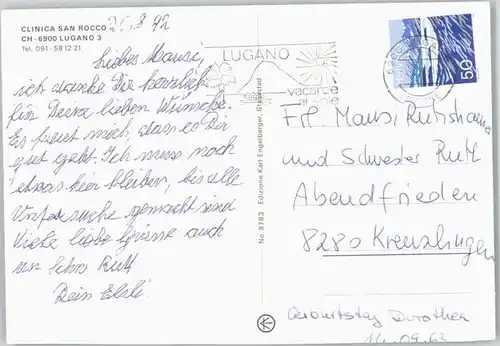 CLINICA SAN ROCCO
CH - 6900 LUGANO 3
Tel. 091 - 58 12 21
Liebes Mausi,
ich danke Dir herzlich
für Deine lieben Wünsche.
Es freut mich, dass es Dir
gut geht. Ich muss noch
etwas hier bleiben, bis alle
Untersuche gemacht sind
Viele liebe Grüsse auch
an Schw. Ruth
Dein Elsli
No. 8783 Edizione Karl Engelberger, Stansstad
LUGANO
vacanze
al sole
50
Frl. Mausi
und Schwester Ruth
Abendfrieden
8280 Kreuzlingen
Geburtstag Dorothea
14.09.63